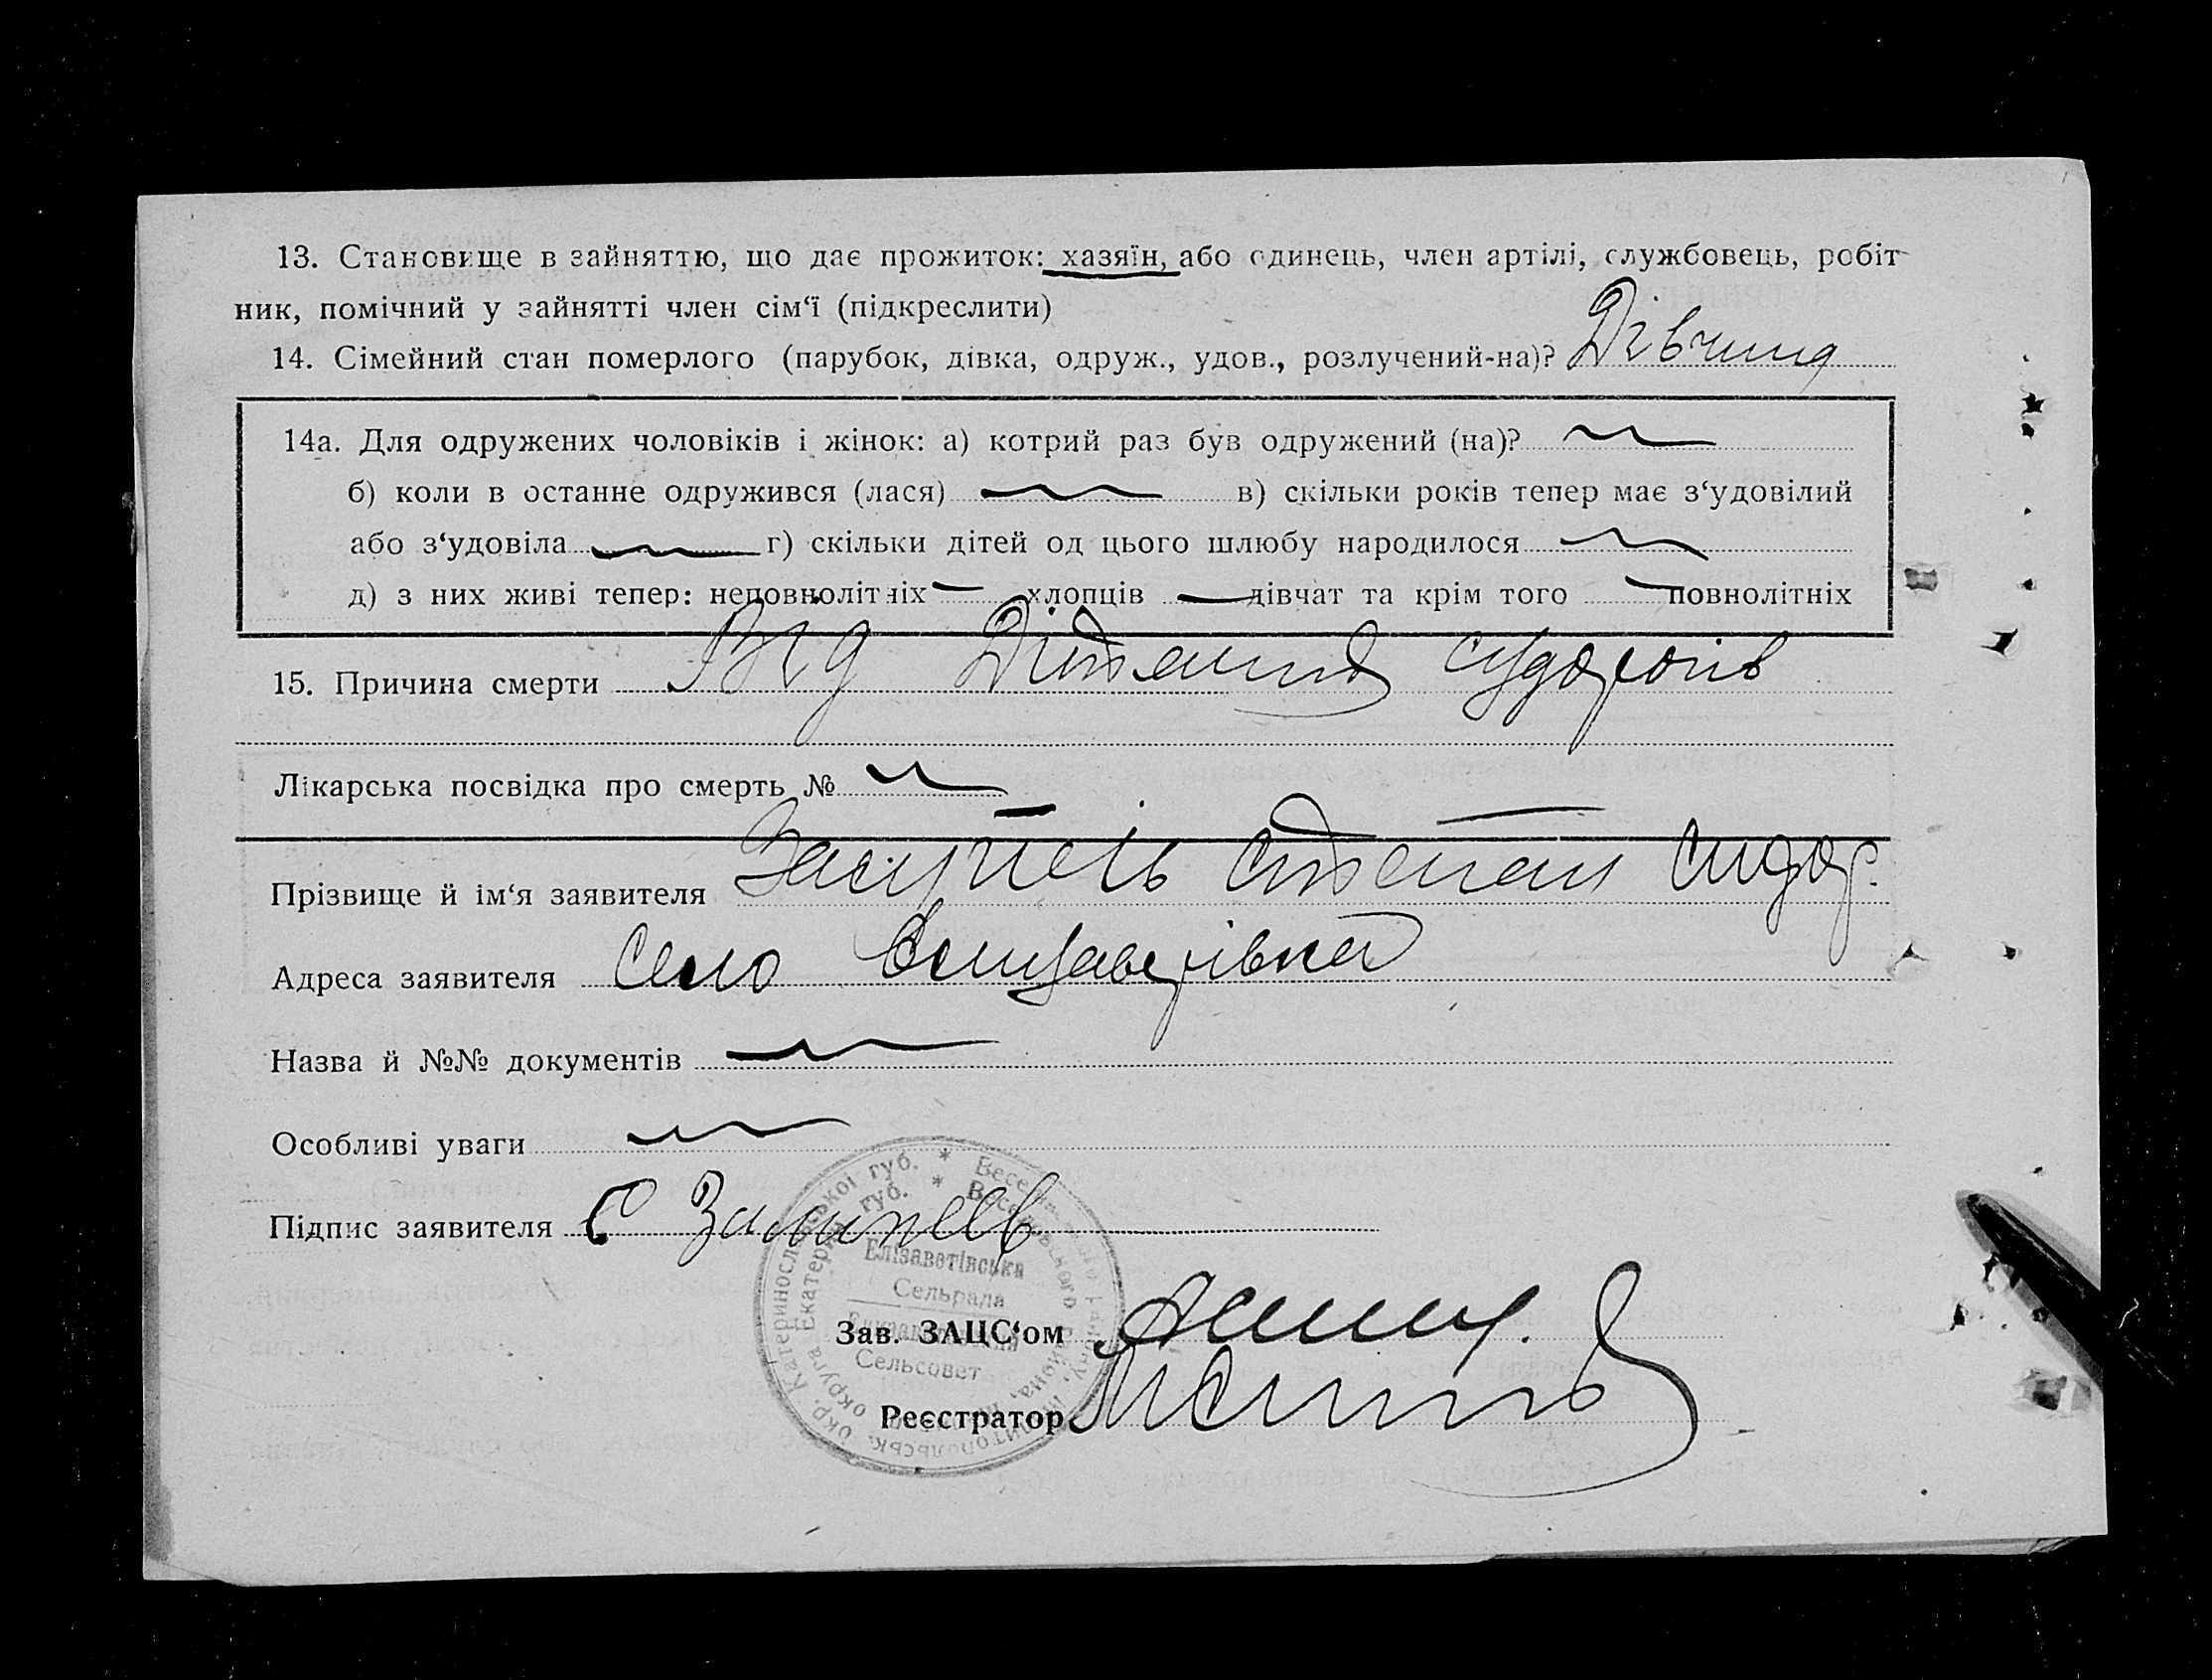 13. Становище в зайняттю, що дає прожиток: хазяїн, або одинець, член артілі, службовець, робіт-
ник, помічний у зайнятті член сім‘ї (підкреслити)
14. Сімейний стан померлого (парубок, дівка, одруж., удов., розлучений-на)? Дівчина
14а. Для одружених чоловіків і жінок: а) котрий раз був одружений (на)?
б) коли в останне одружився (лася) в) скільки років тепер має з‘удовілий
або з‘удовіла г) скільки дітей од цього шлюбу народилося
д) з них живі тепер: неповнолітніх — хлопців — дівчат та крім того — повнолітніх
15. Причина смерти Від Дітячих судорогів
Лікарська посвідка про смерть №
Прізвище й ім‘я заявителя Степан Сидор.
Адреса заявителя Село Єлизаверівка
Назва й №№ документів
Особливі уваги
Підпис заявителя С
Катеринославської губ. * Веселівського району, Мелітопольськ. окр.
Екатерин. губ. * Веселовского района, округа
Елізаветівська
Сельрада
Елизаветовский
Сельсовет
Зав. ЗАЦС‘ом
Реєстратор